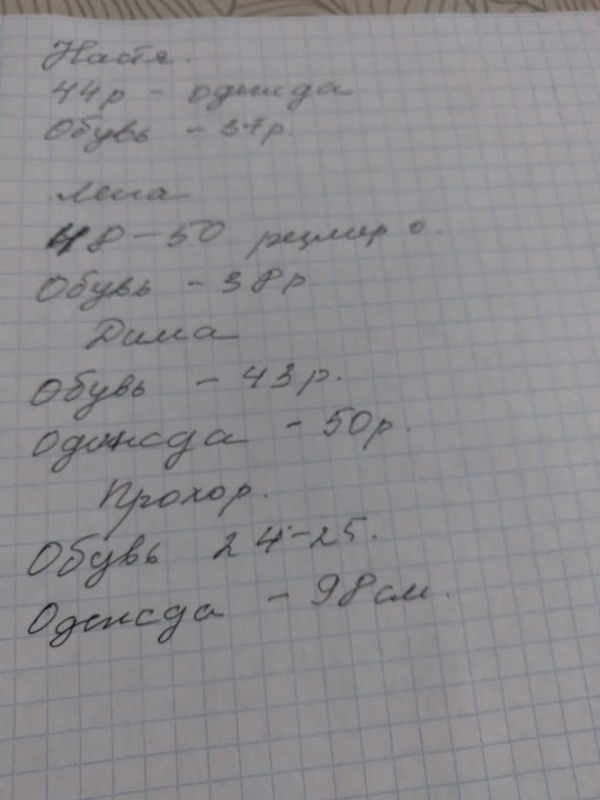 Настя.
44р - одежда
Обувь - 37р.
Лена
48-50 размер о.
Обувь - 38р
Дима
Обувь - 43р.
Одежда - 50р.
Прохор.
Обувь 24-25.
Одежда - 98см.